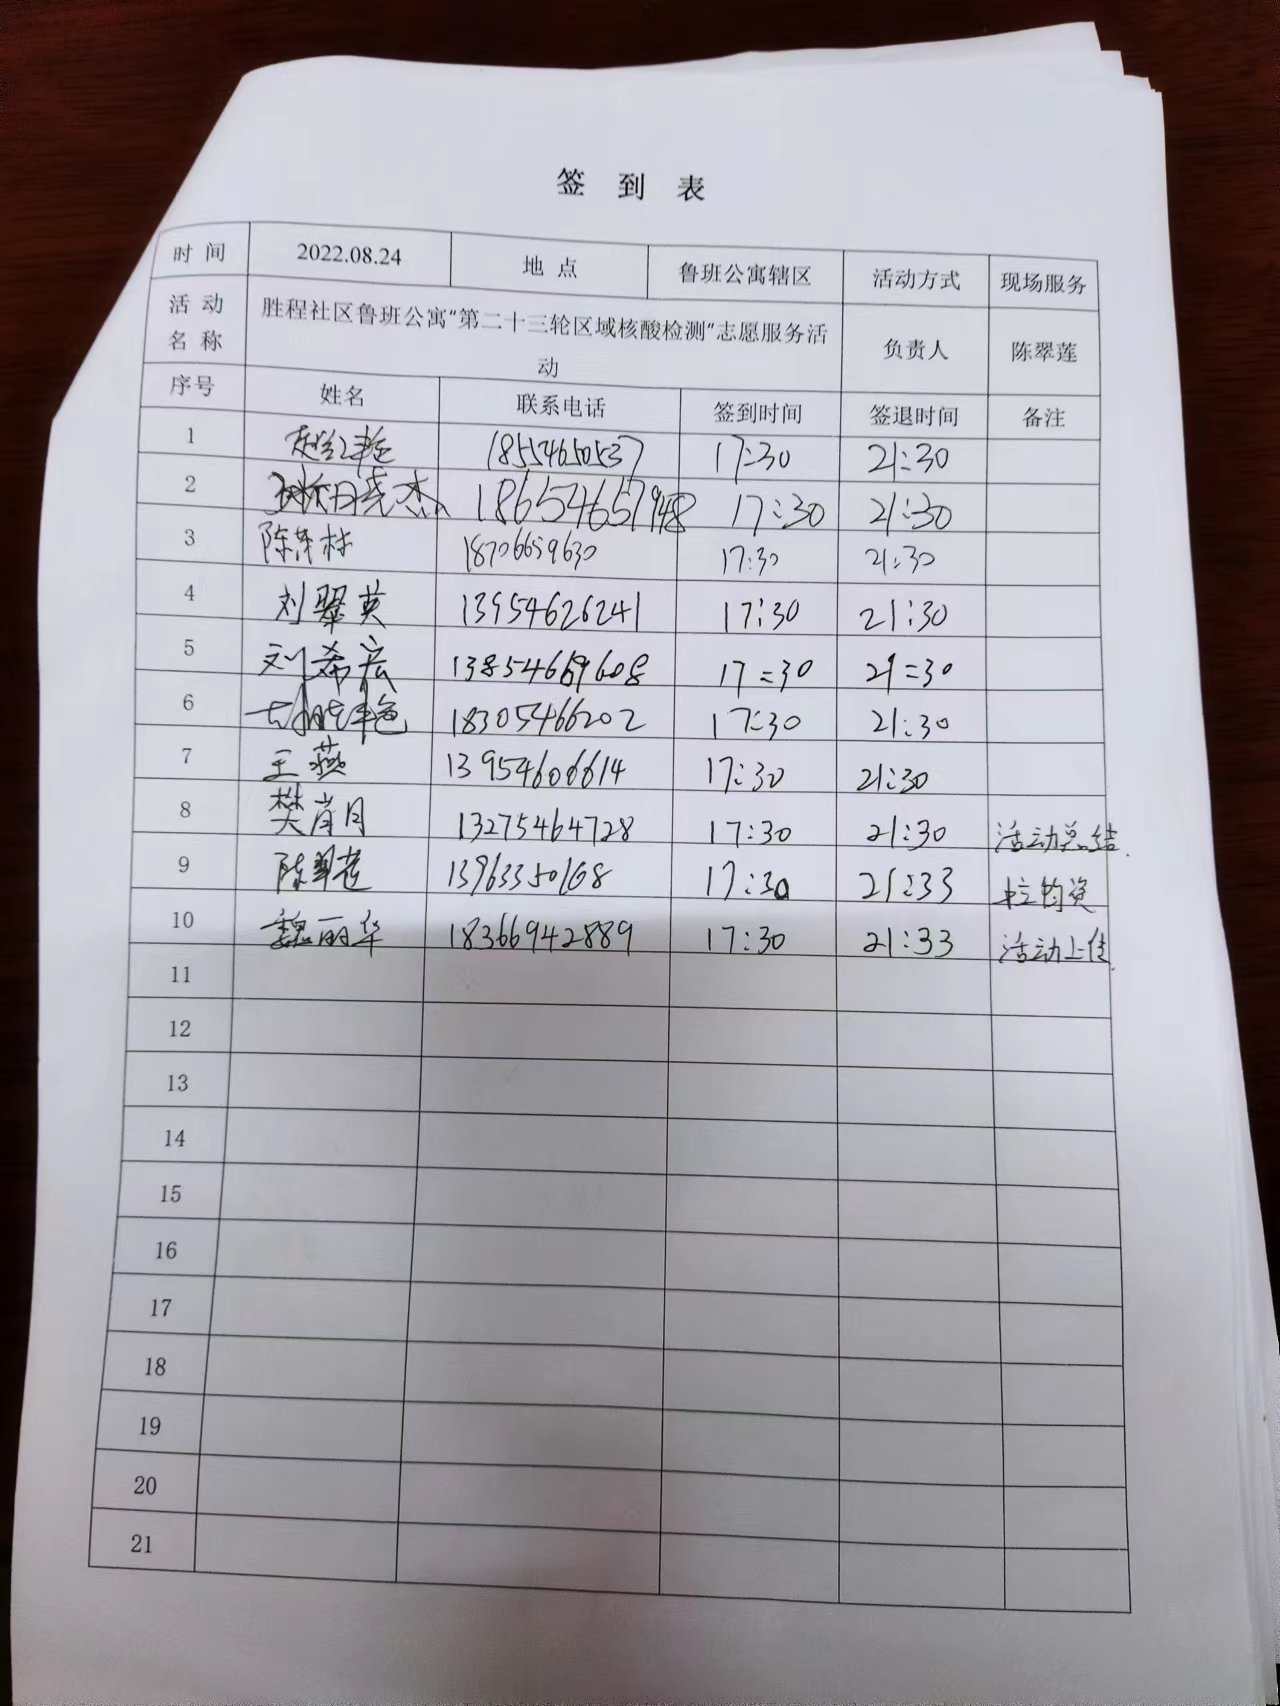 签 到 表
时 间 2022.08.24 地 点 鲁班公寓辖区 活动方式 现场服务
活 动 名 称 胜程社区鲁班公寓“第二十三轮区域核酸检测”志愿服务活动 负责人 陈翠莲
序号 姓名 联系电话 签到时间 签退时间 备注
1 18554650537 17:30 21:30
2 18654657948 17:30 21:30
3 18706659630 17:30 21:30
4 刘翠英 13954626241 17:30 21:30
5 刘希宏 17:30 21:30
6 18305466202 17:30 21:30
7 王燕 13954606614 17:30 21:30
8 樊 月 13275464728 17:30 21:30 活动总结.
9 陈翠莲 13963350168 17:30 21:33 物资
10 魏丽华 18366942889 17:30 21:33 活动上传.
11
12
13
14
15
16
17
18
19
20
21